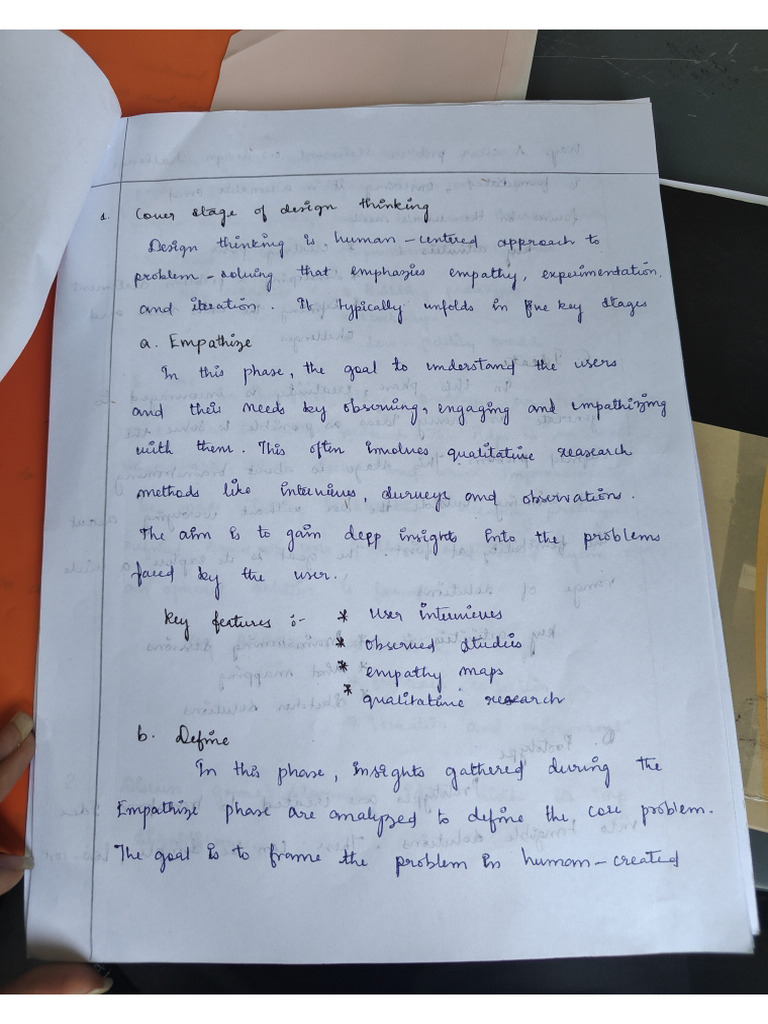 1. Cover stage of design thinking
Design thinking is human-centered approach to
problem-solving that emphasies empathy, experimentation,
and iteration. It typically unfolds in five key stages
a. Empathize
In this phase, the goal to understand the users
and their needs by observing, engaging and empathizing
with them. This often involves qualitative reasearch
methods like interviews, surveys and observations.
The aim is to gain depp insights into the problems
faced by the user.
Key features :- * User interviews
* observed studies
* empathy maps
* qualitative research
b. Define
In this phase, insights gathered during the
Empathize phase are analyzed to define the core problem.
The goal is to frame the problem in human-created